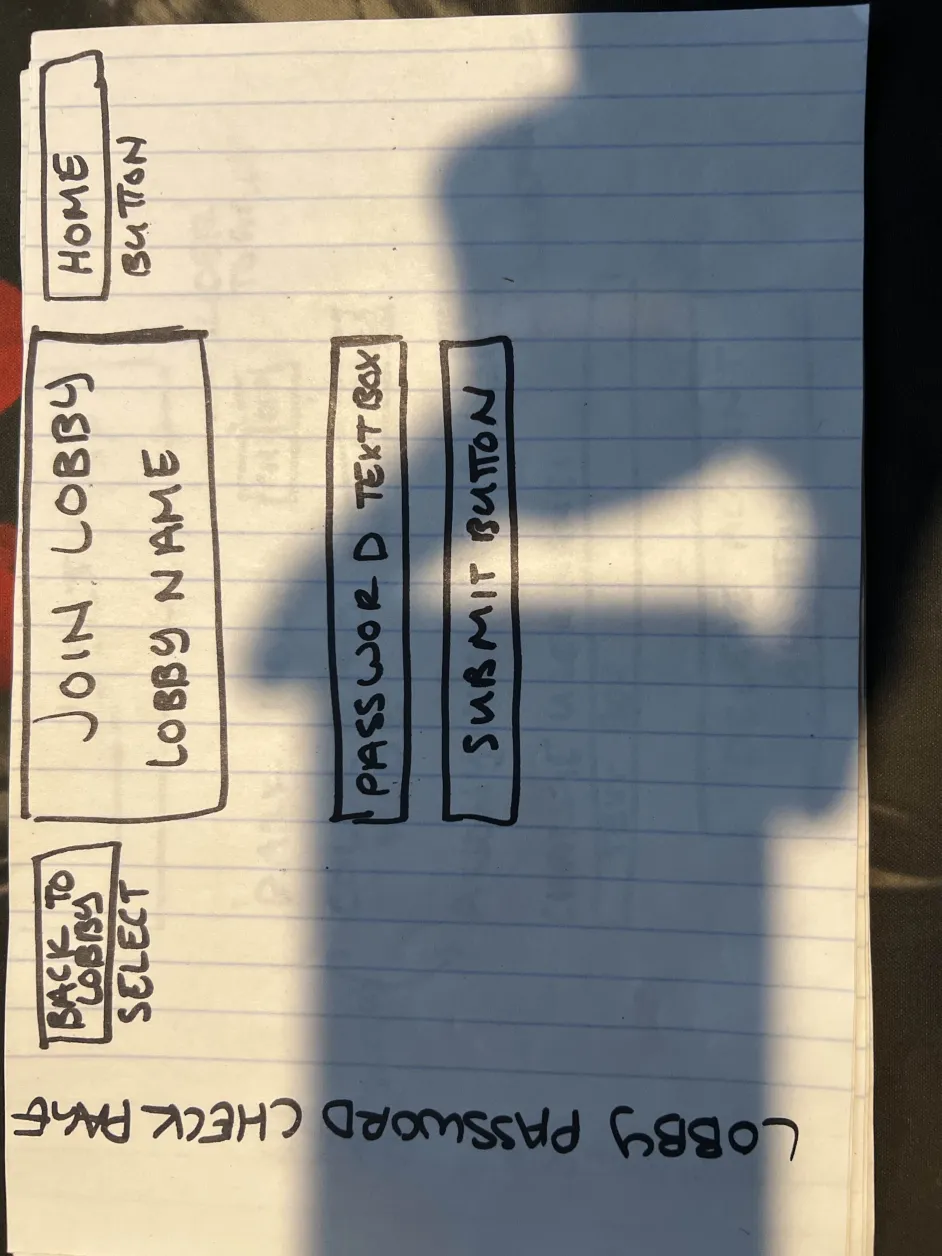 LOBBY PASSWORD CHECK PAGE
BACK TO
LOBBY
SELECT
JOIN LOBBY
LOBBY NAME
HOME
BUTTON
PASSWORD TEXTBOX
SUBMIT BUTTON